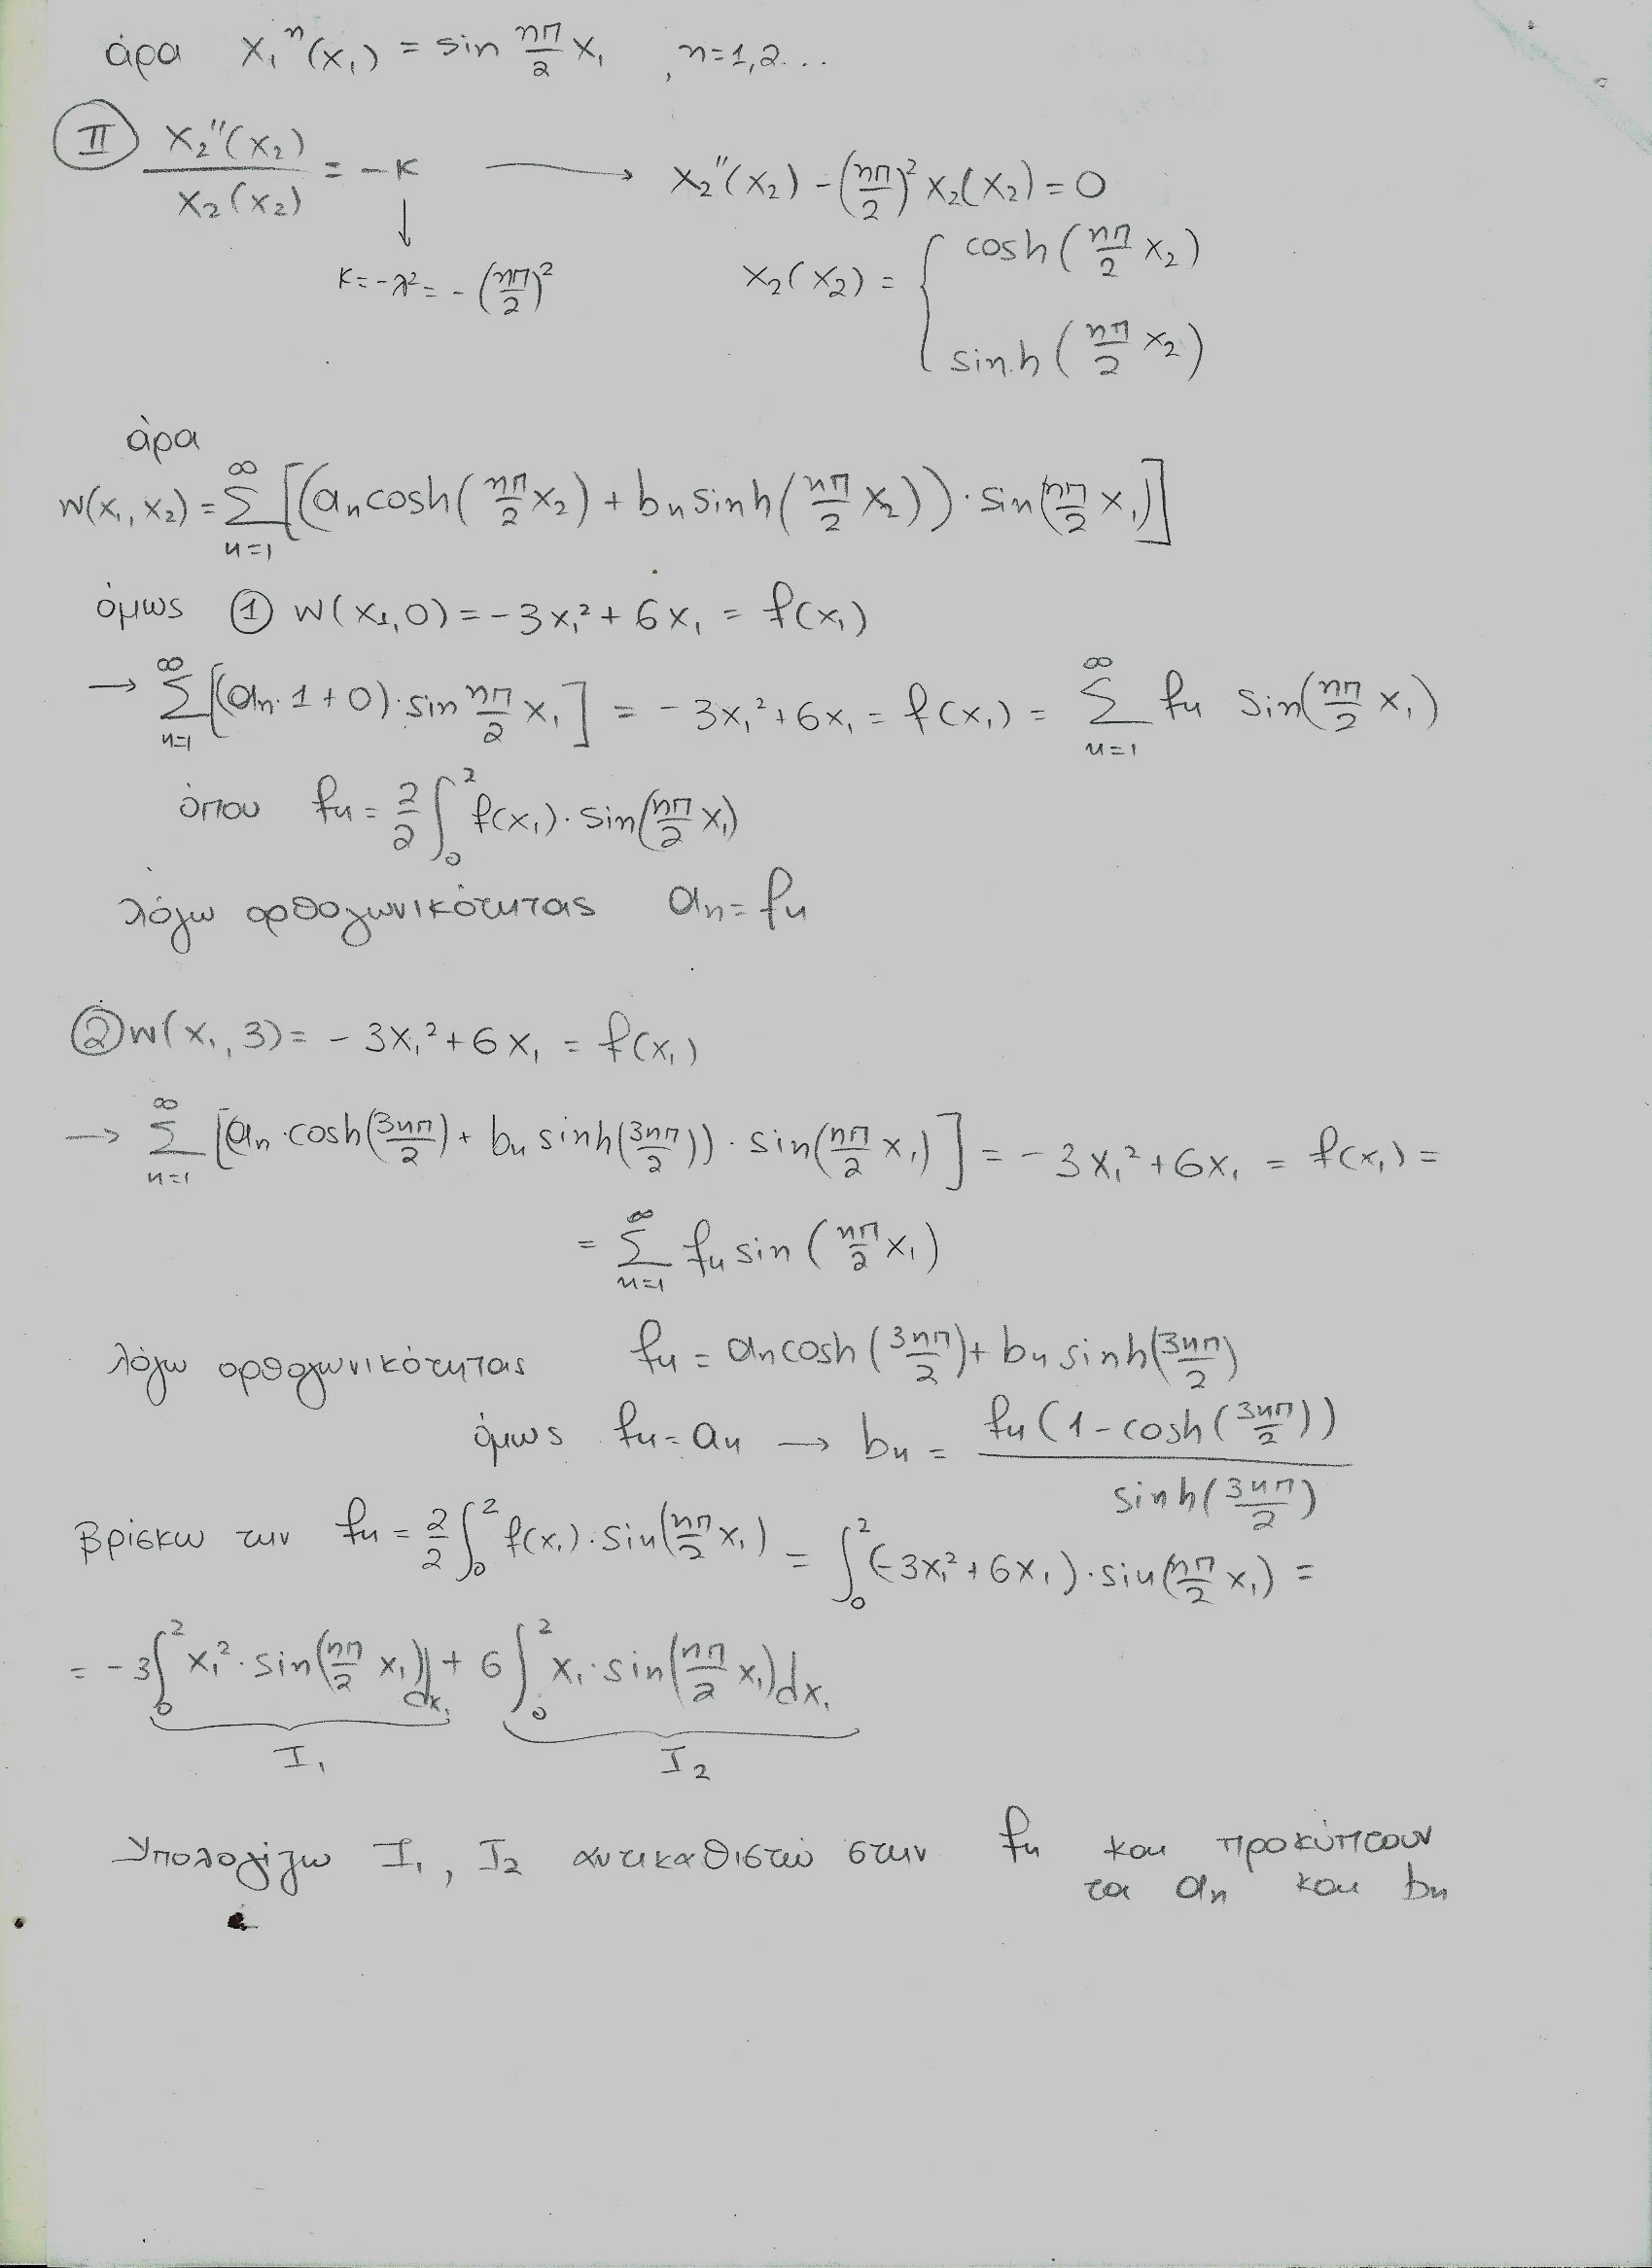 άρα X₁ⁿ(x₁) = sin nπ/2 x₁ , n=1,2...
Ⅱ X₂''(x₂)/X₂(x₂) = -κ → X₂''(x₂) - (nπ/2)² X₂(x₂) = 0
↓
κ = -λ² = -(nπ/2)² X₂(x₂) = { cosh(nπ/2 x₂)
sinh(nπ/2 x₂)
άρα
w(x₁, x₂) = ∑_{n=1}^{∞} [(aₙ cosh(nπ/2 x₂) + bₙ sinh(nπ/2 x₂)) · sin(nπ/2 x₁)]
όμως ① w(x₁, 0) = -3x₁² + 6x₁ = f(x₁)
→ ∑_{n=1}^{∞} [(aₙ·1+0)·sin nπ/2 x₁] = -3x₁² + 6x₁ = f(x₁) = ∑_{n=1}^{∞} fₙ sin(nπ/2 x₁)
όπου fₙ = 2/2 ∫₀² f(x₁)·sin(nπ/2 x₁)
λόγω ορθογωνικότητας aₙ = fₙ
② w(x₁, 3) = -3x₁² + 6x₁ = f(x₁)
→ ∑_{n=1}^{∞} [(aₙ·cosh(3nπ/2) + bₙ sinh(3nπ/2))·sin(nπ/2 x₁)] = -3x₁² + 6x₁ = f(x₁) =
= ∑_{n=1}^{∞} fₙ sin(nπ/2 x₁)
λόγω ορθογωνικότητας fₙ = aₙ cosh(3nπ/2) + bₙ sinh(3nπ/2)
όμως fₙ = aₙ → bₙ = fₙ(1 - cosh(3nπ/2))/sinh(3nπ/2)
Βρίσκω την fₙ = 2/2 ∫₀² f(x₁)·sin(nπ/2 x₁) = ∫₀² (-3x₁² + 6x₁)·sin(nπ/2 x₁) =
= -3∫₀² x₁²·sin(nπ/2 x₁)dx₁ + 6∫₀² x₁·sin(nπ/2 x₁)dx₁
I₁ I₂
Υπολογίζω I₁, I₂ αντικαθιστώ στην fₙ και προκύπτουν
τα aₙ και bₙ